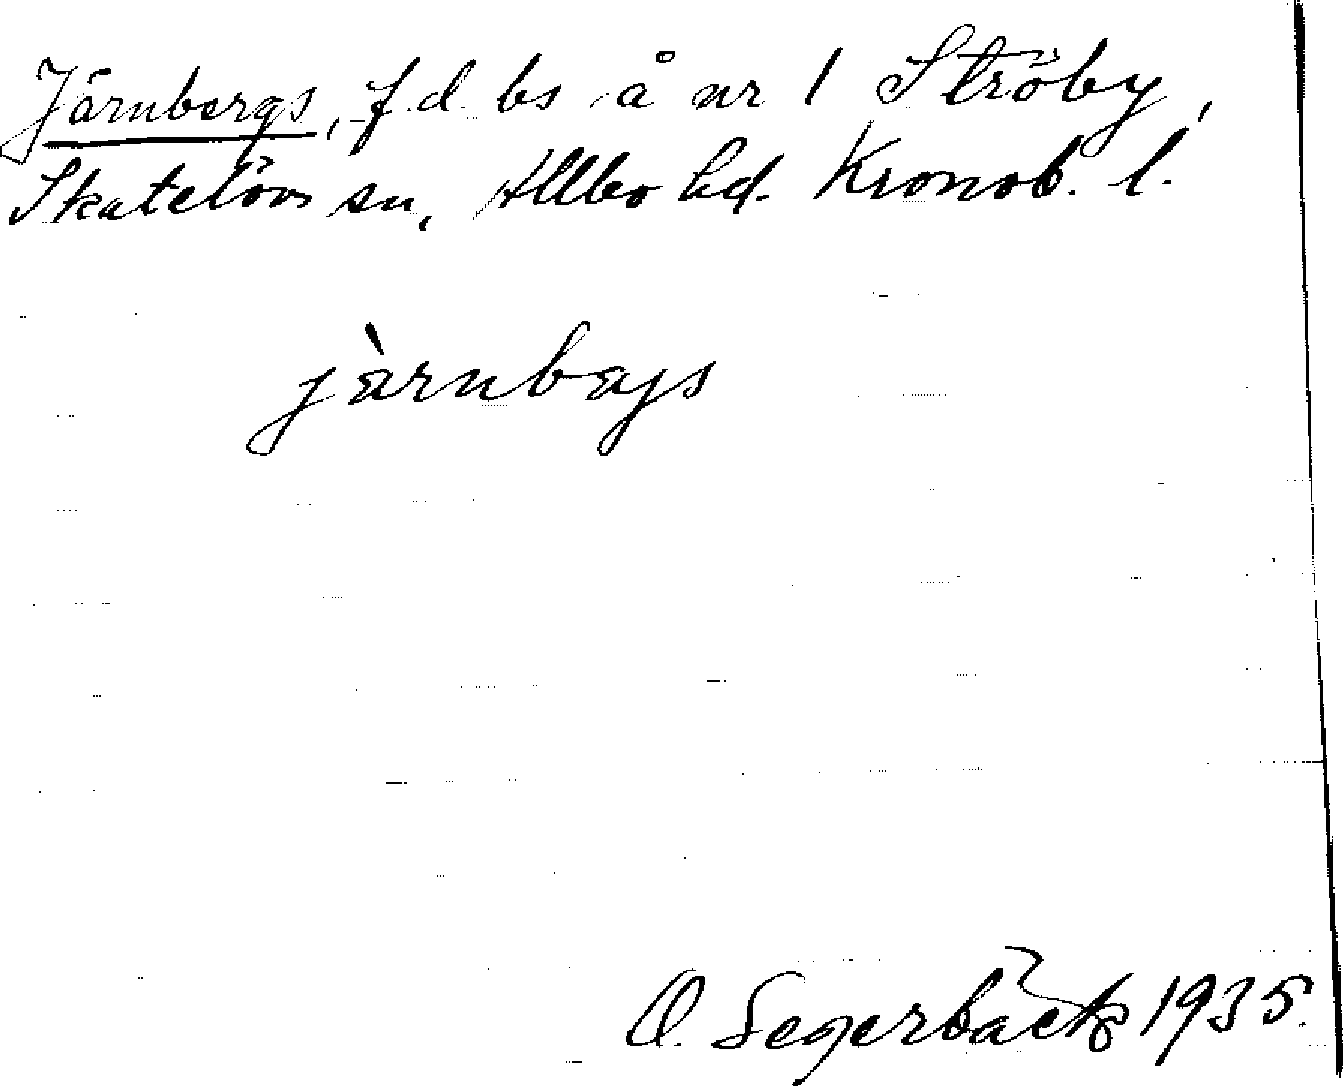 Järnbergs, f.d. bs å nr 1 Ströby,
Skatelövs sn, Allbo hd. Kronob. l.
jàrnbæjs
O. Segerbäck 1935.